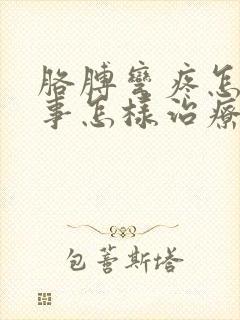 胳膊彎疼怎
事怎樣治療
包蒼斯塔